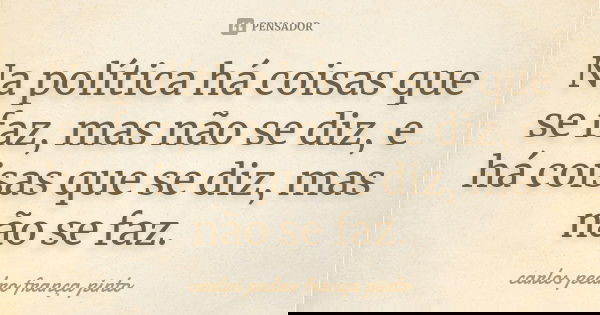 PENSADOR
Na política há coisas que
se faz, mas não se diz, e
há coisas que se diz, mas
não se faz.
carlos pedro frança pinto